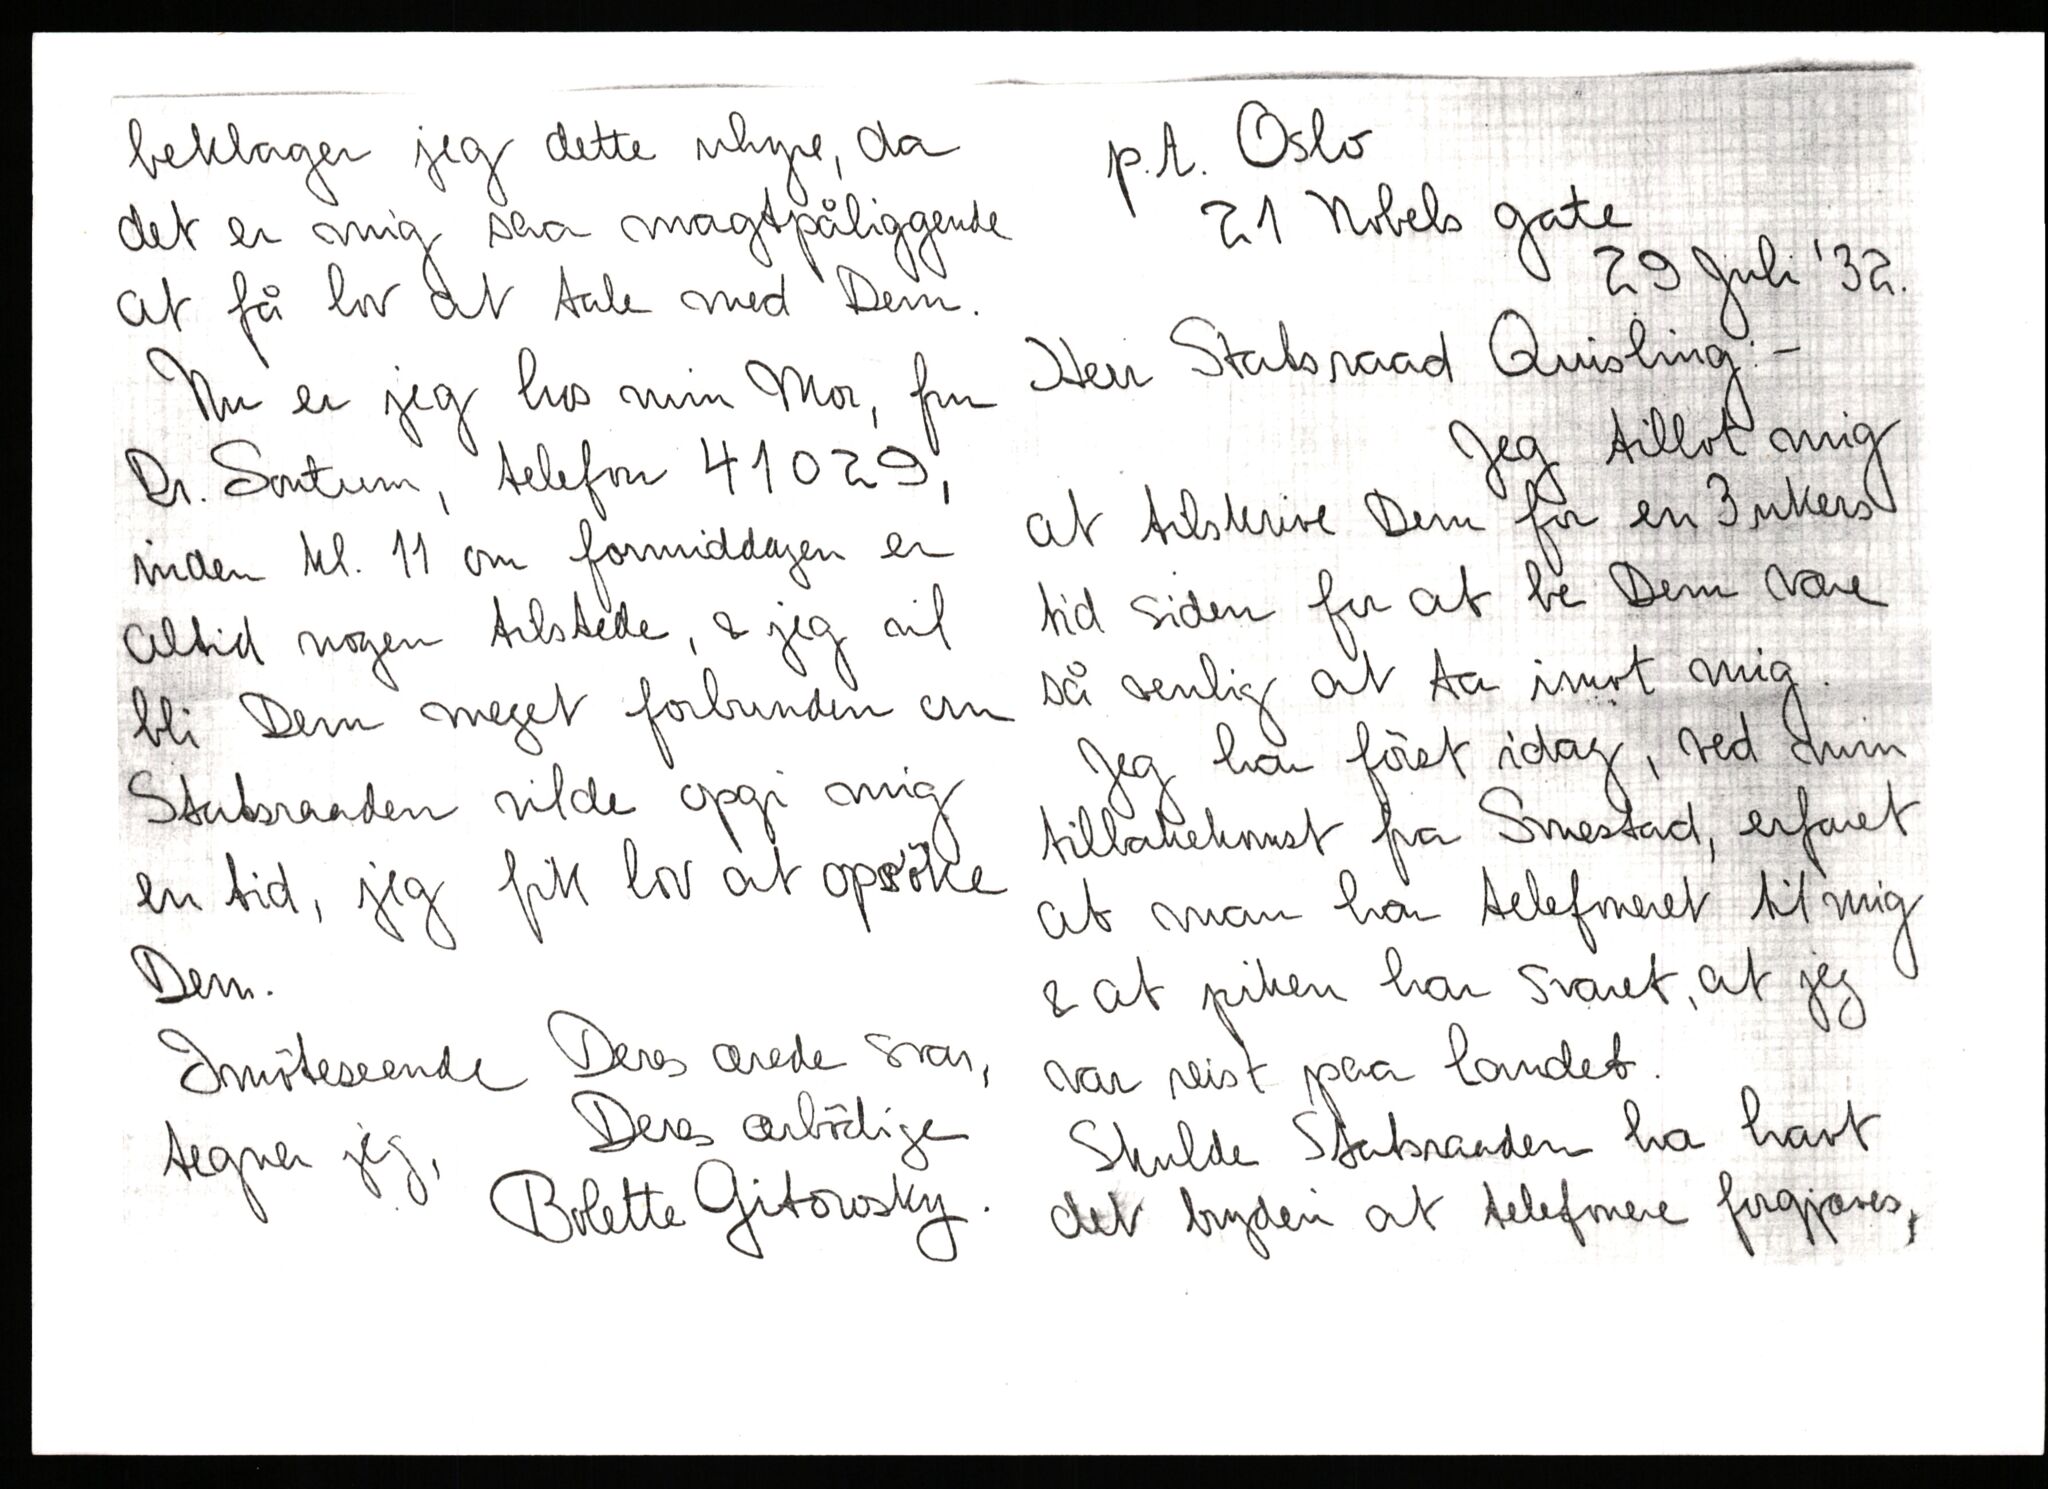 p.t. Oslo
21 Nobels gate
29 Juli '32.
Herr Statsraad Quisling: –
Jeg tillot mig
at tilskrive Dem for en 3 ukers
tid siden for at be Dem være
så venlig at ta imot mig.
Jeg har först idag, ved min
tilbakekomst fra Smestad, erfaret
at man har telefoneret til mig
& at piken har svaret, at jeg
var reist paa landet.
Skulde Statsraaden ha havt
det bryderi at telefonere forgjæves,
beklager jeg dette uhyre, da
det er mig saa magtpåliggende
at få lov at tale med Dem.
Nu er jeg hos min Mor, fru
Dr. Sontum, telefon 41029,
inden kl. 11 om formiddagen er
altid nogen tilstede, & jeg vil
bli Dem meget forbunden om
Statsraaden vilde opgi mig
en tid, jeg fik lov at opsöke
Dem.
Imöteseende Deres ærede svar,
tegner jeg, Deres ærbödige
Bolette Gitowsky.